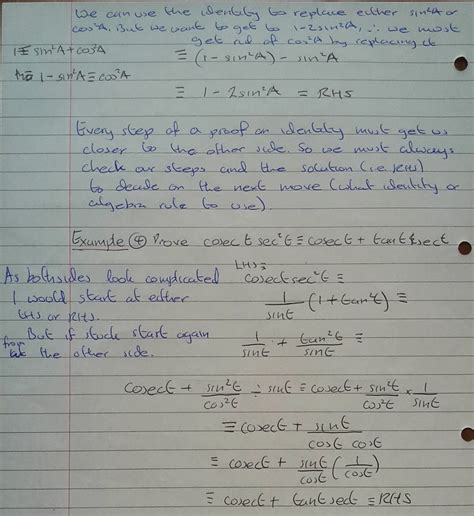 We can use the identity to replace either sin²A or
cos²A. But we want to get to 1-2sin²A, ∴ we must
get rid of cos²A by replacing it
1≡sin²A+cos²A
≡ (1-sin²A)-sin²A
1-sin²A≡cos²A
≡ 1-2sin²A = RHS
Every step of a proof an identity must get us
closer to the other side. So we must always
check our steps and the solution (i.e. RHS)
to decide on the next move (what identity or
algebra rule to use).
Example ④ Prove cosec t sec²t ≡ cosec t + tan t sec t
As both sides look complicated
I would start at either
LHS or RHS.
But if stuck start again
from the other side.
LHS ≡
cosec t sec²t ≡
1/sin t (1+tan²t) ≡
1/sin t + tan²t/sin t ≡
cosec t + sin²t/cos²t ÷ sin t ≡ cosec t + sin²t/cos²t × 1/sin t
≡ cosec t + sin t/cos t cos t
≡ cosec t + sin t/cos t (1/cos t)
≡ cosec t + tan t sec t ≡ RHS